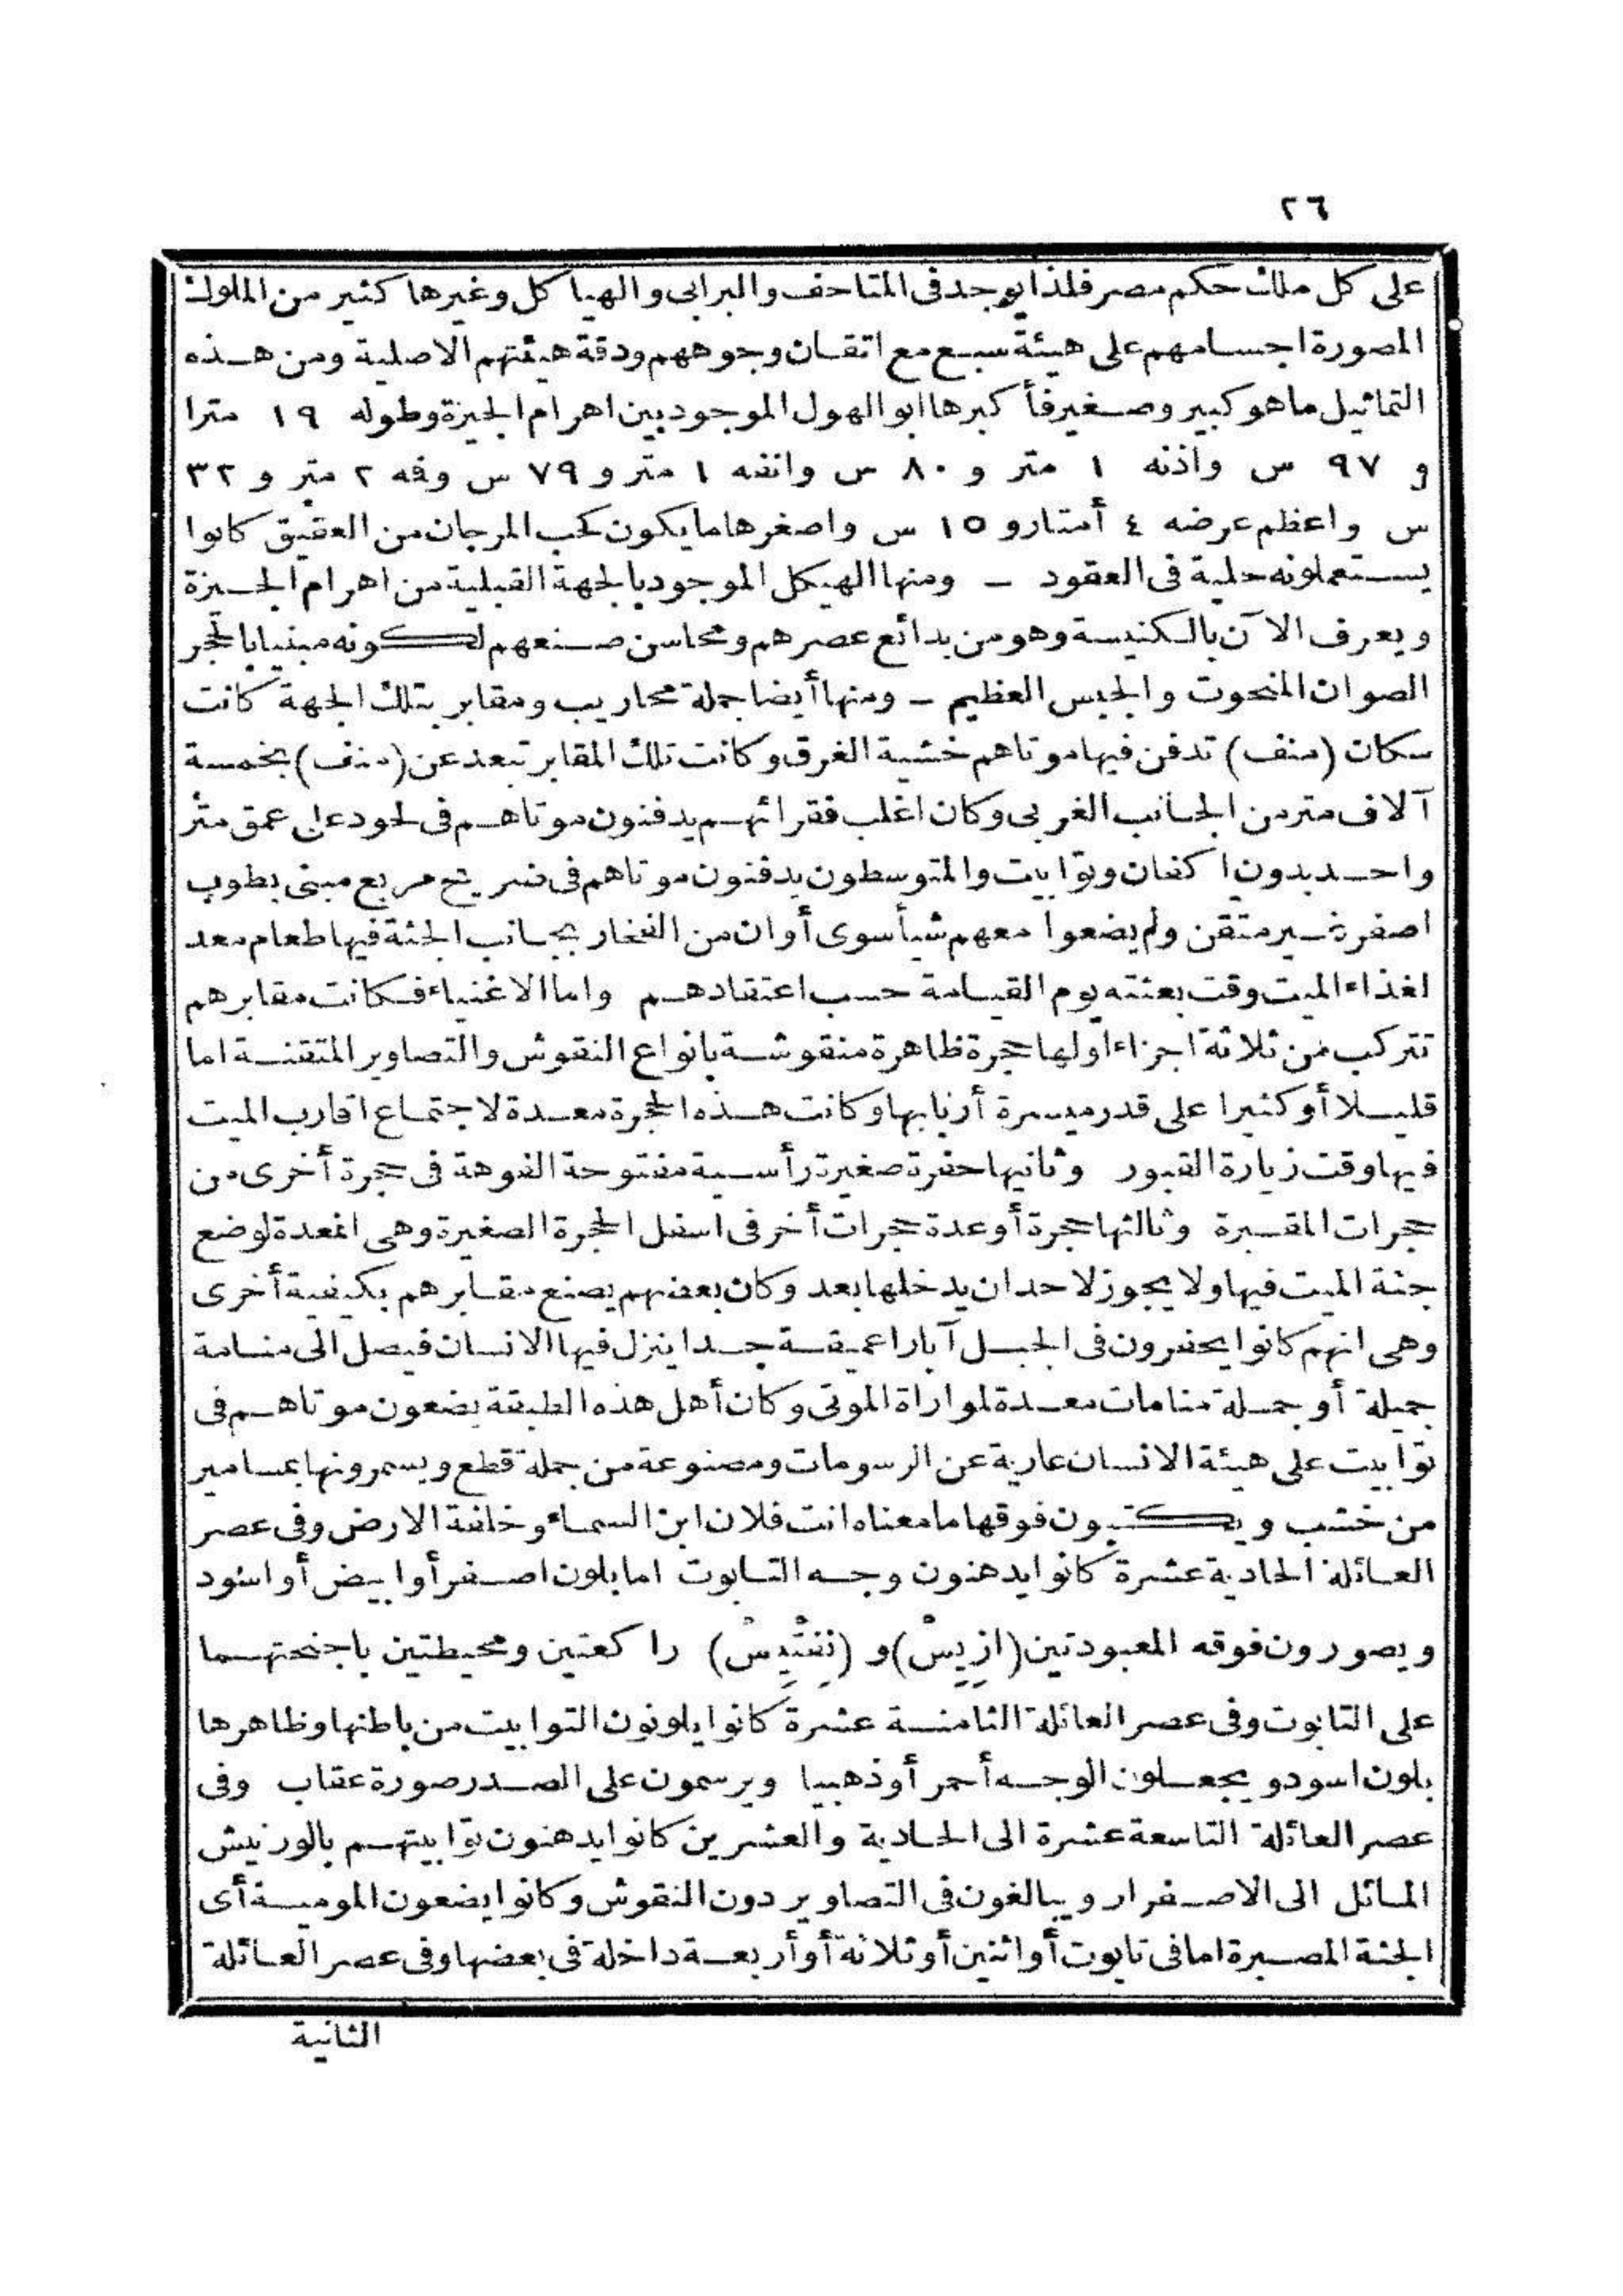 ٢٦
على كل ملك حكم مصر فلذا يوجد فى المتاحف والبرابى والهياكل وغيرها كثير من الملوك
المصورة اجسامهم على هيئة سبع مع اتقان وجوههم ودقة هيئتهم الاصلية ومن هذه
التماثيل ما هو كبير وصغير فأكبرها ابو الهول الموجود بين اهرام الجيزة وطوله ١٩ مترا
و ٩٧ س واذنه ١ متر و ٨٠ س وانفه ١ متر و ٧٩ س وفه ٢ متر و ٣٢
س واعظم عرضه ٤ أمتار و ١٥ س واصغرها ما يكون كحب المرجان من العقيق كانوا
يستعملونه حلية فى العقود ـ ومنها الهيكل الموجود بالجهة القبلية من اهرام الجيزة
ويعرف الآن بالكنيسة وهو من بدائع عصرهم ومحاسن صنعهم لكونه مبنيا بالحجر
الصوان المنحوت والجبس العظيم ـ ومنها أيضا جملة محاريب ومقابر بتلك الجهة كانت
سكان (منف) تدفن فيها موتاهم خشية الغرق وكانت تلك المقابر تبعد عن (منف) بخمسة
آلاف متر من الجانب الغربى وكان اغلب فقرائهم يدفنون موتاهم فى لحود على عمق متر
واحد بدون اكفان وتوابيت والمتوسطون يدفنون موتاهم فى ضريح مربع مبنى بطوب
اصفر غير متقن ولم يضعوا معهم شيأ سوى أوان من الفخار بجانب الجثة فيها طعام معد
لغذاء الميت وقت بعثته يوم القيامة حسب اعتقادهم واما الاغنياء فكانت مقابرهم
تتركب من ثلاثة اجزاء اولها حجرة ظاهرة منقوشة بانواع النقوش والتصاوير المتقنة اما
قليلا أو كثيرا على قدر ميسرة أربابها وكانت هذه الحجرة معدة لاجتماع اقارب الميت
فيها وقت زيارة القبور وثانيها حفرة صغيرة رأسية مفتوحة الفوهة فى حجرة أخرى من
حجرات المقبرة وثالثها حجرة أو عدة حجرات أخر فى اسفل الحجرة الصغيرة وهى المعدة لوضع
جثة الميت فيها ولا يجوز لاحد ان يدخلها بعد وكان بعضهم يصنع مقابرهم بكيفية أخرى
وهى انهم كانوا يحفرون فى الجبل آبارا عميقة جدا ينزل فيها الانسان فيصل الى منامة
جميلة أو جملة منامات معدة لمواراة الموتى وكان أهل هذه الطبقة يضعون موتاهم فى
توابيت على هيئة الانسان عارية عن الرسومات ومصنوعة من جملة قطع ويسمرونها بمسامير
من خشب ويكتبون فوقها ما معناه انت فلان ابن السماء وخلفة الارض وفى عصر
العائلة الحادية عشرة كانوا يدهنون وجه التابوت اما بلون اصفر أو ابيض أو اسود
ويصورون فوقه المعبودتين (ازِيِسْ) و (نِفْتِيِسْ) راكعتين ومحيطتين باجنحتهما
على التابوت وفى عصر العائلة الثامنة عشرة كانوا يلونون التوابيت من باطنها وظاهرها
بلون اسود ويجعلون الوجه أحمر أو ذهبيا ويرسمون على الصدر صورة عقاب وفى
عصر العائلة التاسعة عشرة الى الحادية والعشرين كانوا يدهنون توابيتهم بالورنيش
المائل الى الاصفرار ويبالغون فى التصاوير دون النقوش وكانوا يضعون المومية أى
الجثة المصبرة اما فى تابوت أو اثنين أو ثلاثة أو أربعة داخلة فى بعضها وفى عصر العائلة
الثانية